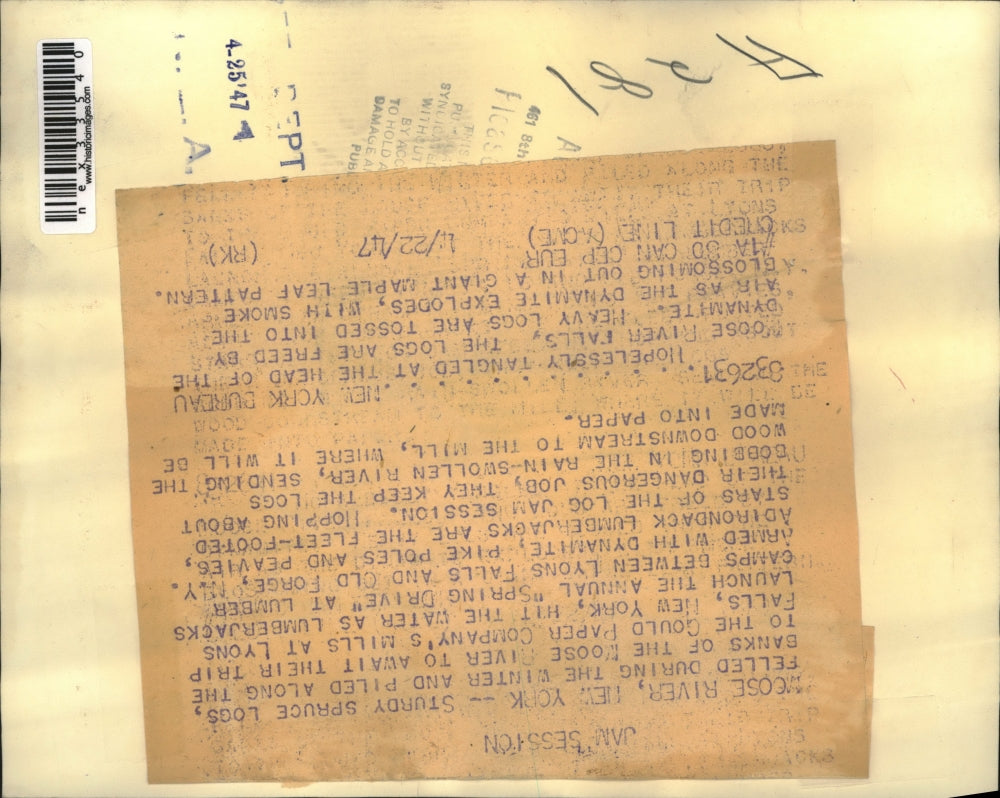 JAM SESSION
MOOSE RIVER, NEW YORK -- STURDY SPRUCE LOGS,
FELLED DURING THE WINTER AND PILED ALONG THE
BANKS OF THE MOOSE RIVER TO AWAIT THEIR TRIP
TO THE GOULD PAPER COMPANY'S MILLS AT LYONS
FALLS, NEW YORK, HIT THE WATER AS LUMBERJACKS
LAUNCH THE ANNUAL "SPRING DRIVE" AT LUMBER
CAMPS BETWEEN LYONS FALLS AND OLD FORGE, N.Y.
ARMED WITH DYNAMITE, PIKE POLES AND PEAVIES,
ADIRONDACK LUMBERJACKS ARE THE FLEET-FOOTED
STARS OF THE LOG JAM SESSION. HOPPING ABOUT
THEIR DANGEROUS JOB, THEY KEEP THE LOGS
BOBBING IN THE RAIN-SWOLLEN RIVER, SENDING THE
WOOD DOWNSTREAM TO THE MILL, WHERE IT WILL BE
MADE INTO PAPER.
NEW YORK BUREAU
832631 . . . . . . . . . .
HOPELESSLY TANGLED AT THE HEAD OF THE
MOOSE RIVER FALLS, THE LOGS ARE FREED BY
DYNAMITE. - HEAVY LOGS ARE TOSSED INTO THE
AIR AS THE DYNAMITE EXPLODES, WITH SMOKE
BLOSSOMING OUT IN A GIANT MAPLE LEAF PATTERN.
#1A BO CAN CEP EUR
CREDIT LINE (ACME) 4/22/47 (RK)
4-25'47
DEPT.
461 8th
WITHOUT
BY ACC
TO HOLD A
DAMAGE A
PUB
nex33540
www.historicimages.com